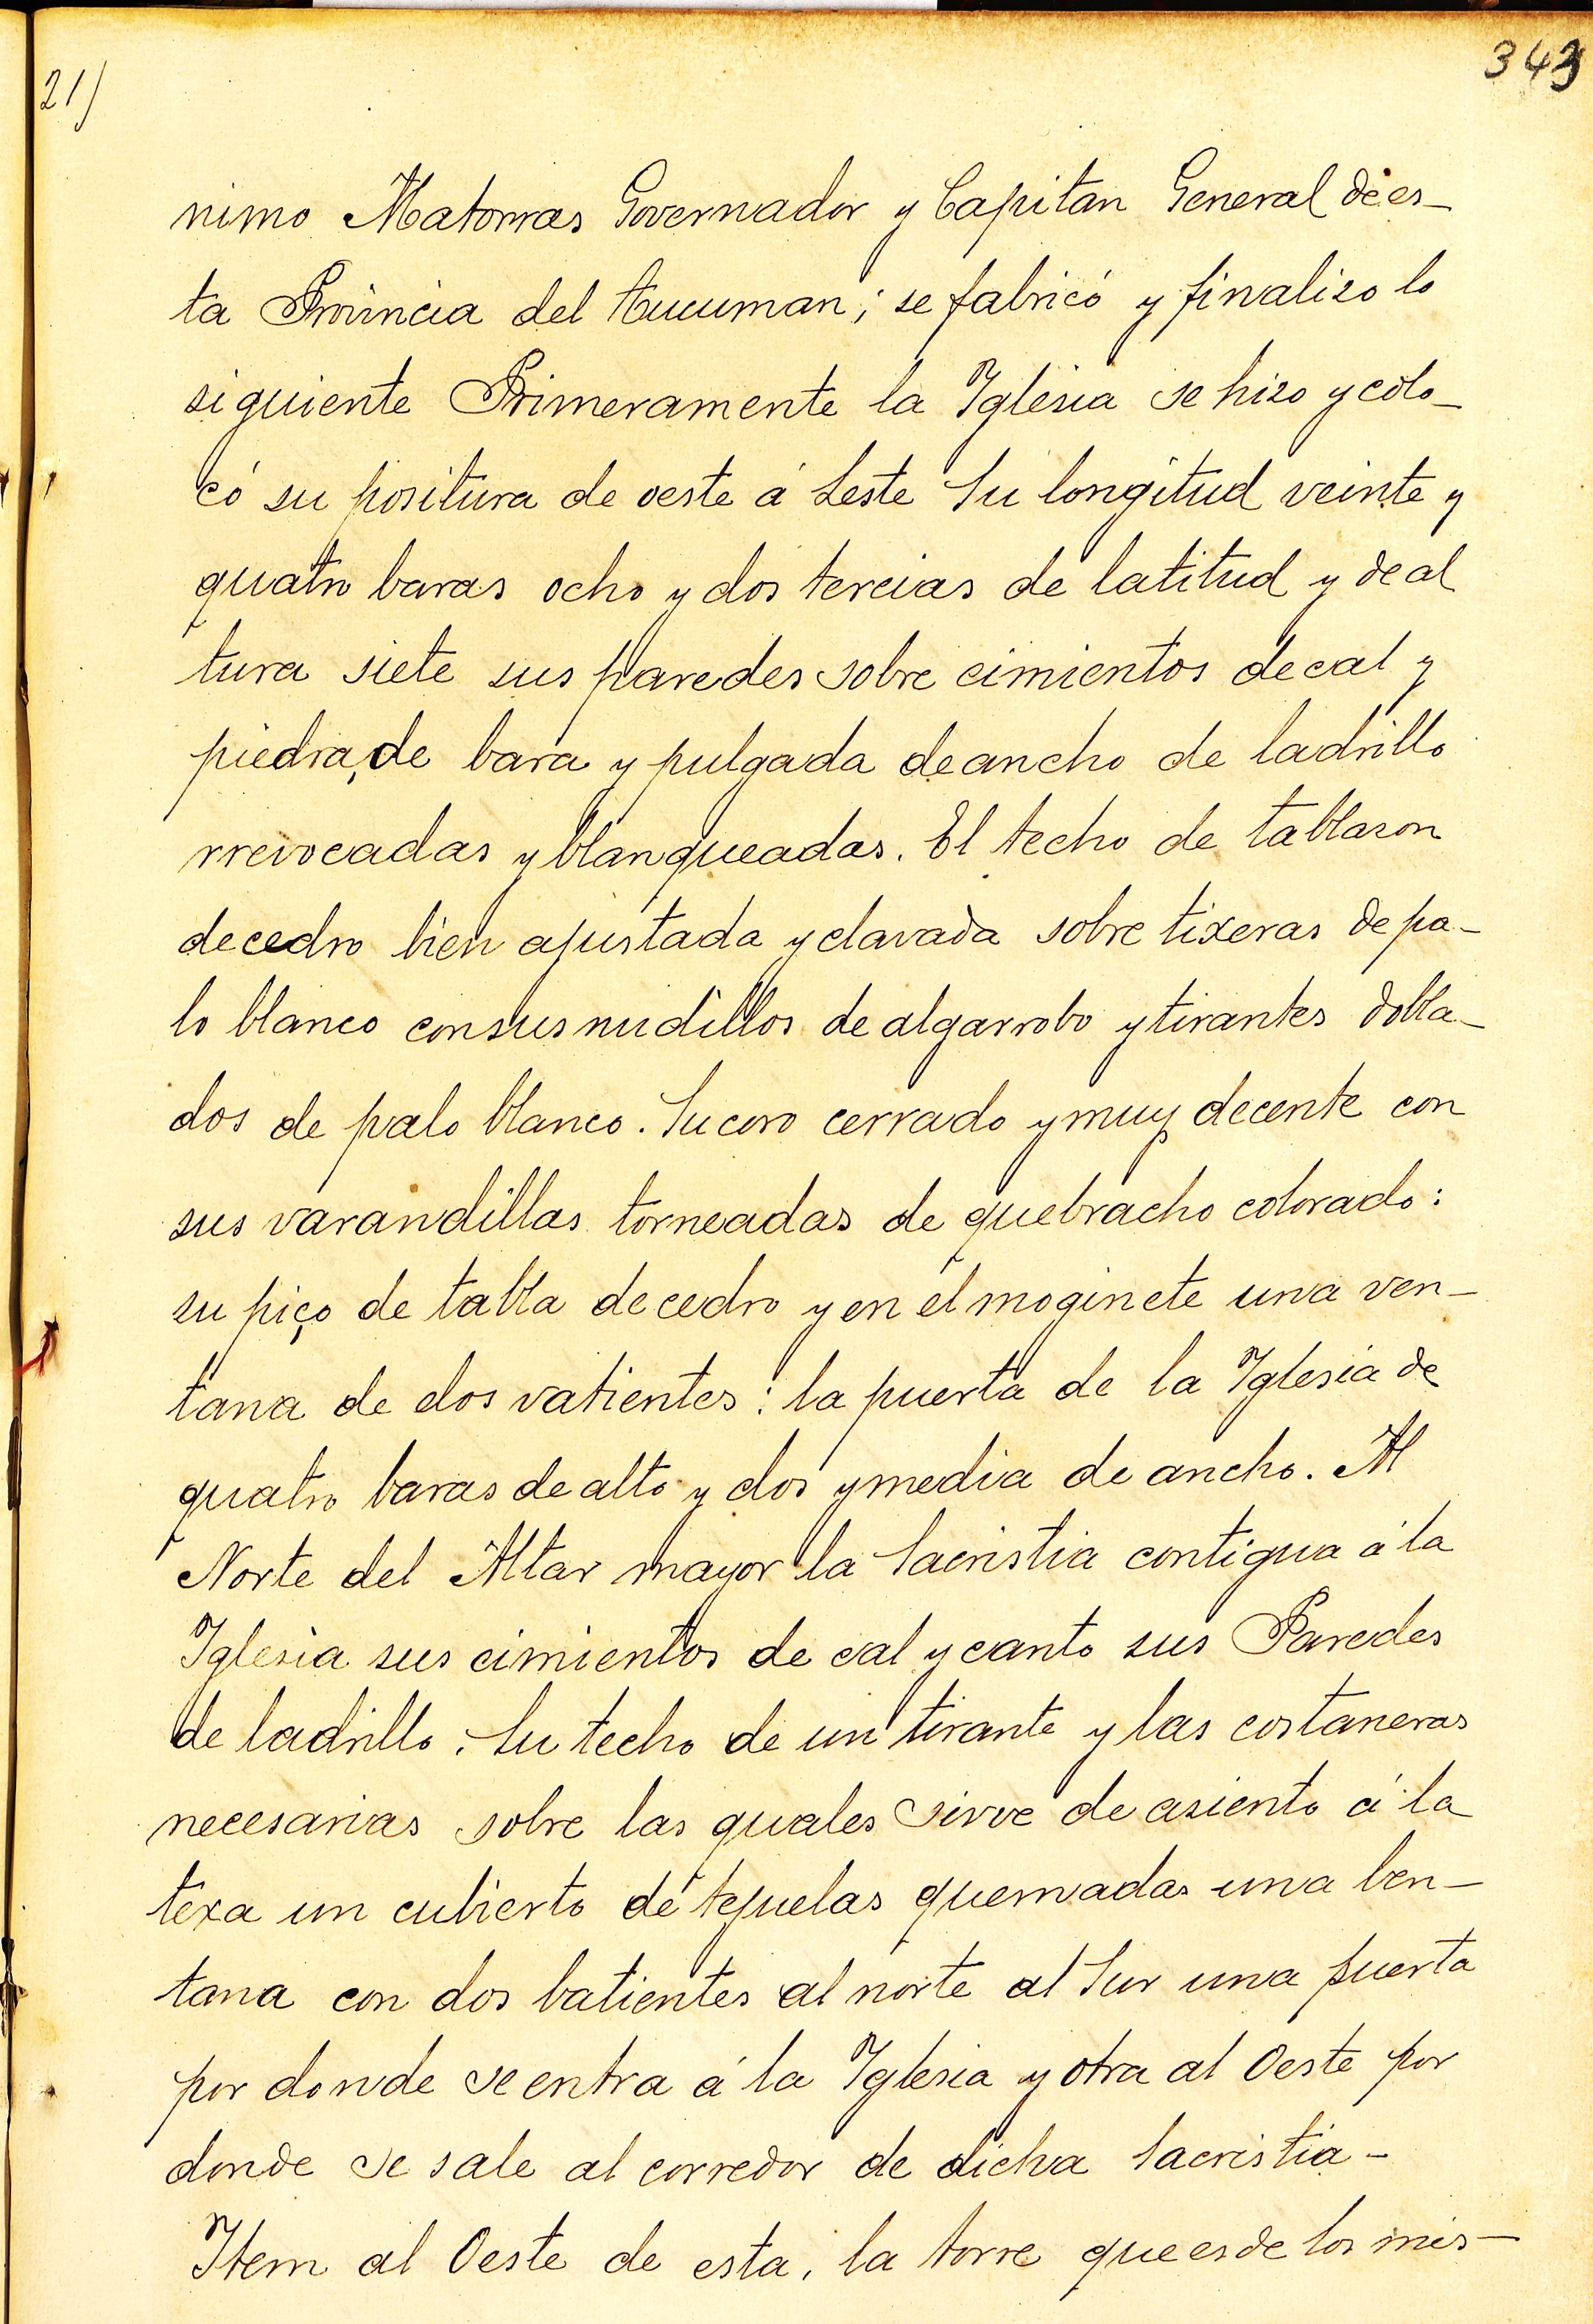 21)
343
nimo Matorras Governador y Capitan General de es-
ta Provincia del tucuman; se fabricó y finalizo lo
siguiente Primeramente la Iglesia se hizo y colo-
có su positura de oeste á Leste Su longitud veinte y
quatro baras ocho y dos tercias de latitud y de al
tura siete sus paredes sobre cimientos de cal y
piedra, de bara y pulgada de ancho de ladrillo
rrevocadas y blanqueadas. El techo de tablazon
de cedro bien ajustada y clavada sobre tixeras de pa-
lo blanco con sus nudillos de algarrobo y tirantes dobla-
dos de palo blanco. Su coro cerrado y muy decente con
sus varandillas torneadas de quebracho colorado:
su piço de tabla de cedro y en el moginete una ven-
tana de dos vatientes: la puerta de la Iglesia de
quatro baras de alto y dos y media de ancho. Al
Norte del Altar mayor la Sacristia contigua á la
Iglesia sus cimientos de cal y canto sus Paredes
de ladrillo. Su techo de un tirante y las costaneras
necesarias sobre las quales sirve de asiento á la
texa un cubierto de tejuelas quemadas una ben-
tana con dos batientes al norte al Sur una puerta
por donde se entra á la Iglesia y otra al Oeste por
donde se sale al corredor de dicha Sacristia -
Item al Oeste de esta, la torre que es de los mis-